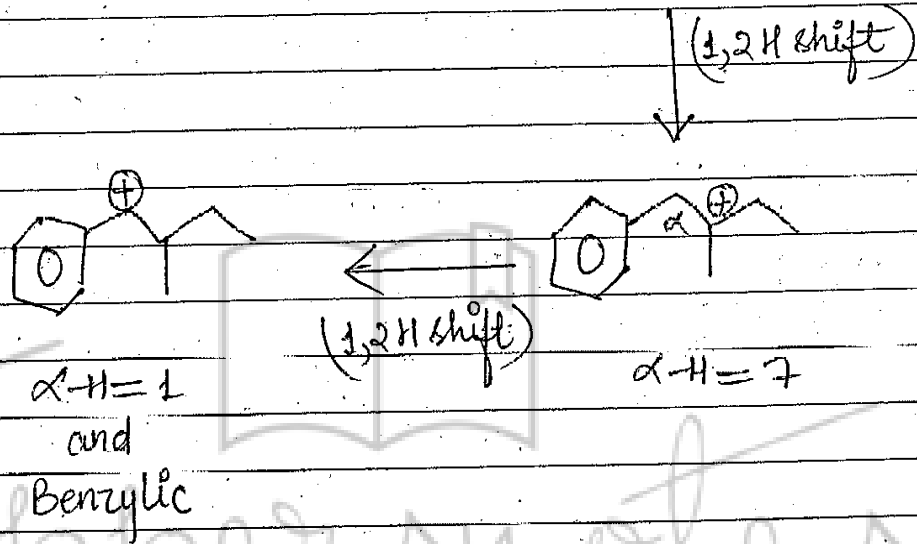 (1,2 H shift)
⊕
α ⊕
(1,2 H shift)
α-H=1
α-H=7
and
Benzylic